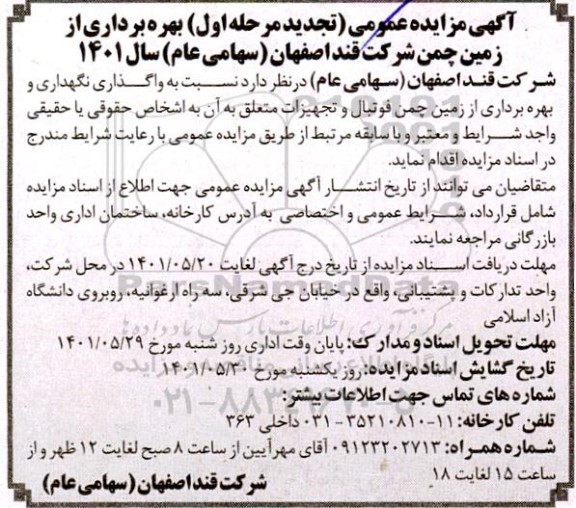 آگهی مزایده عمومی (تجدید مرحله اول) بهره برداری از
زمین چمن شرکت قند اصفهان (سهامی عام) سال ۱۴۰۱
شرکت قند اصفهان (سهامی عام) در نظر دارد نسبت به واگذاری نگهداری و
بهره برداری از زمین چمن فوتبال و تجهیزات متعلق به آن به اشخاص حقوقی یا حقیقی
واجد شرایط و معتبر و با سابقه مرتبط از طریق مزایده عمومی با رعایت شرایط مندرج
در اسناد مزایده اقدام نماید.
متقاضیان می توانند از تاریخ انتشار آگهی مزایده عمومی جهت اطلاع از اسناد مزایده
شامل قرارداد، شرایط عمومی و اختصاصی به آدرس کارخانه، ساختمان اداری واحد
بازرگانی مراجعه نمایند.
مهلت دریافت اسناد مزایده از تاریخ درج آگهی لغایت ۱۴۰۱/۰۵/۲۰ در محل شرکت،
واحد تدارکات و پشتیبانی، واقع در خیابان جی شرقی، سه راه ارغوانیه، روبروی دانشگاه
آزاد اسلامی
مهلت تحویل اسناد و مدارک: پایان وقت اداری روز شنبه مورخ ۱۴۰۱/۰۵/۲۹
تاریخ گشایش اسناد مزایده: روز یکشنبه مورخ ۱۴۰۱/۰۵/۳۰
شماره های تماس جهت اطلاعات بیشتر:
تلفن کارخانه: ۱۱-۳۵۲۱۰۸۱۰-۰۳۱ داخلی ۳۶۳
شماره همراه: ۰۹۱۲۳۲۰۲۷۱۳ آقای مهرآیین از ساعت ۸ صبح لغایت ۱۲ ظهر و از
ساعت ۱۵ لغایت ۱۸
شرکت قند اصفهان (سهامی عام)